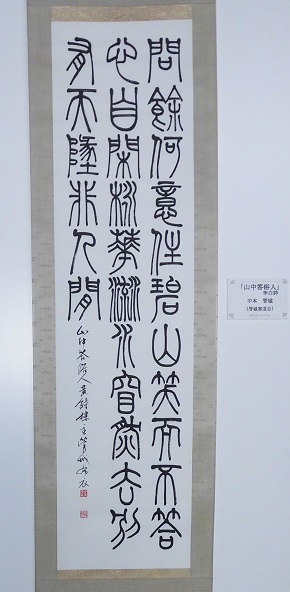 問餘何意住碧山笑而不答
心自閑桃華流水窅然去別
有天墬非人間
山中答俗人
「山中答俗人」
李白詩
中本